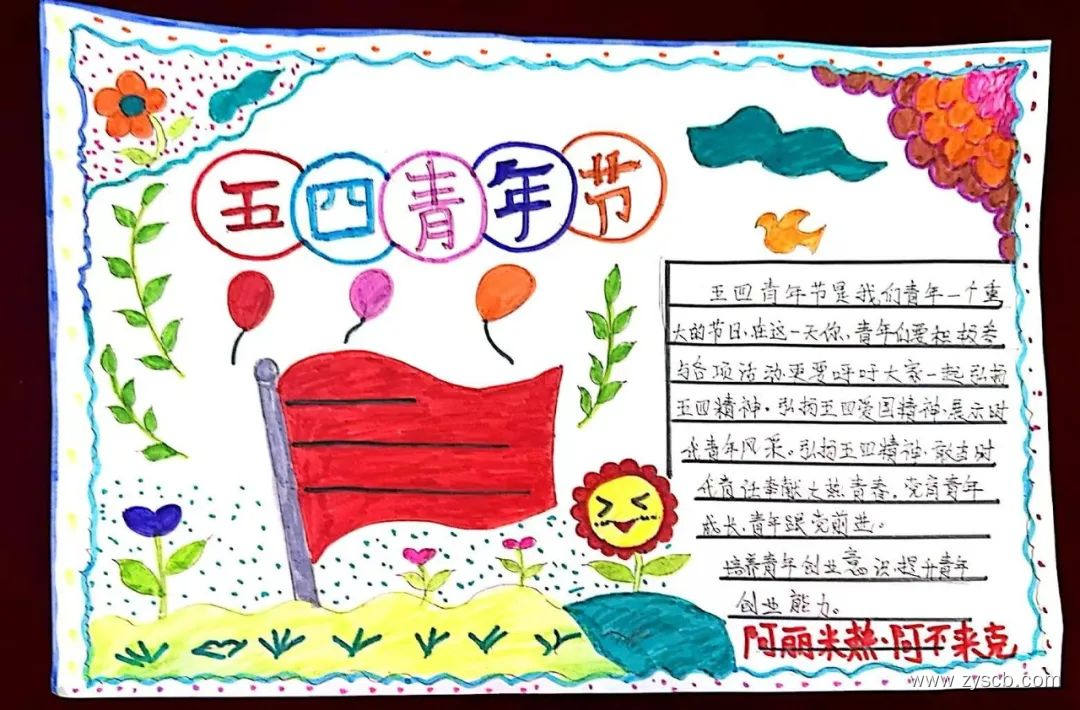 五四青年节
五四青年节是我们青年一个重
大的节日,在这一天你,青年们要积极参
与各项活动更要呼吁大家一起弘扬
五四精神。弘扬五四爱国精神,展示时
代青年风采。弘扬五四精神,敢当时
代责任奉献之热青春。党育青年
成长,青年跟党前进。
培养青年创业意识,提升青年
创业能力。
阿丽米热·阿不来克
www.zyscb.com